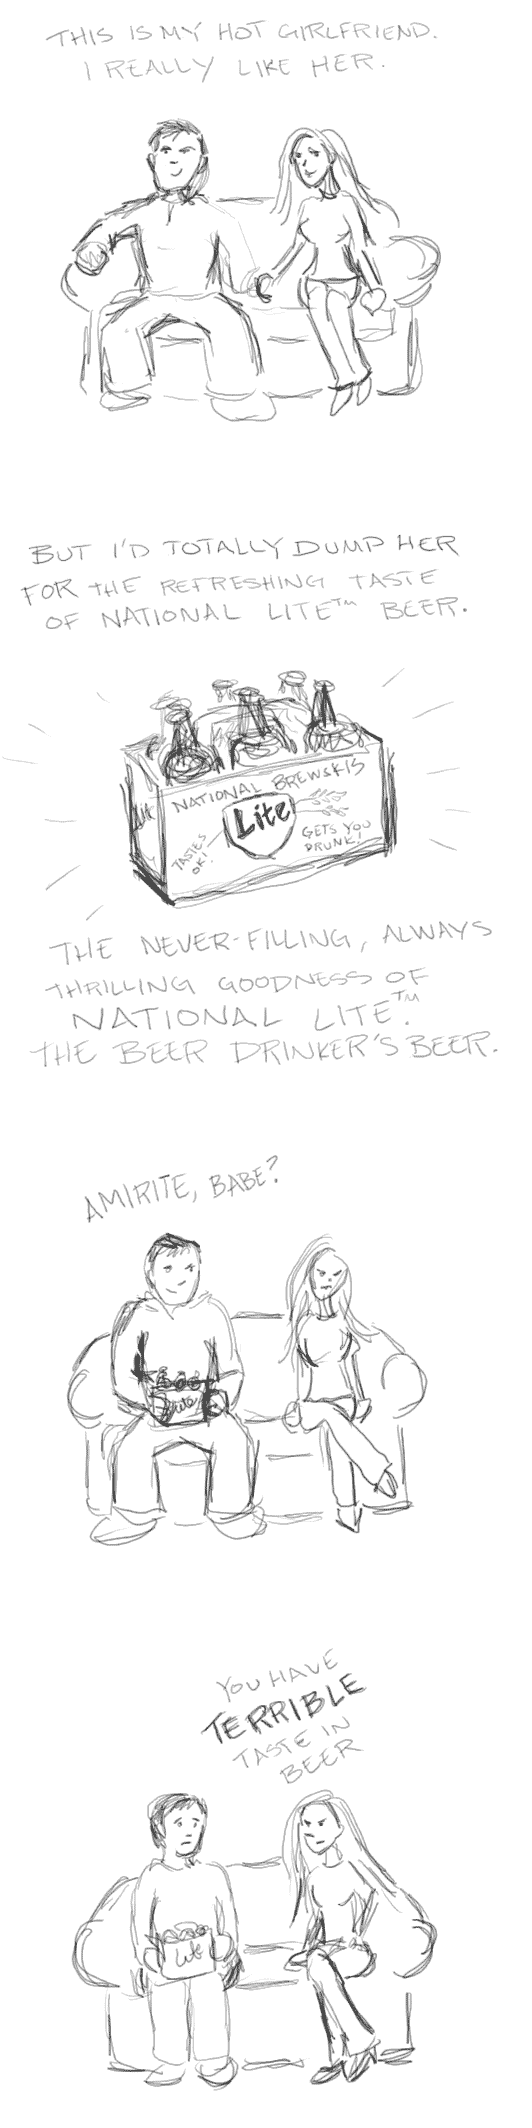 THIS IS MY HOT GIRLFRIEND.
I REALLY LIKE HER.
BUT I'D TOTALLY DUMP HER
FOR THE REFRESHING TASTE
OF NATIONAL LITE™ BEER.
NATIONAL BREWSKIS
Lite
Lite
TASTES
OK!
GETS YOU
DRUNK!
THE NEVER-FILLING, ALWAYS
THRILLING GOODNESS OF
NATIONAL LITE™.
THE BEER DRINKER'S BEER.
AMIRITE, BABE?
Lite
YOU HAVE
TERRIBLE
TASTE IN
BEER
Lite